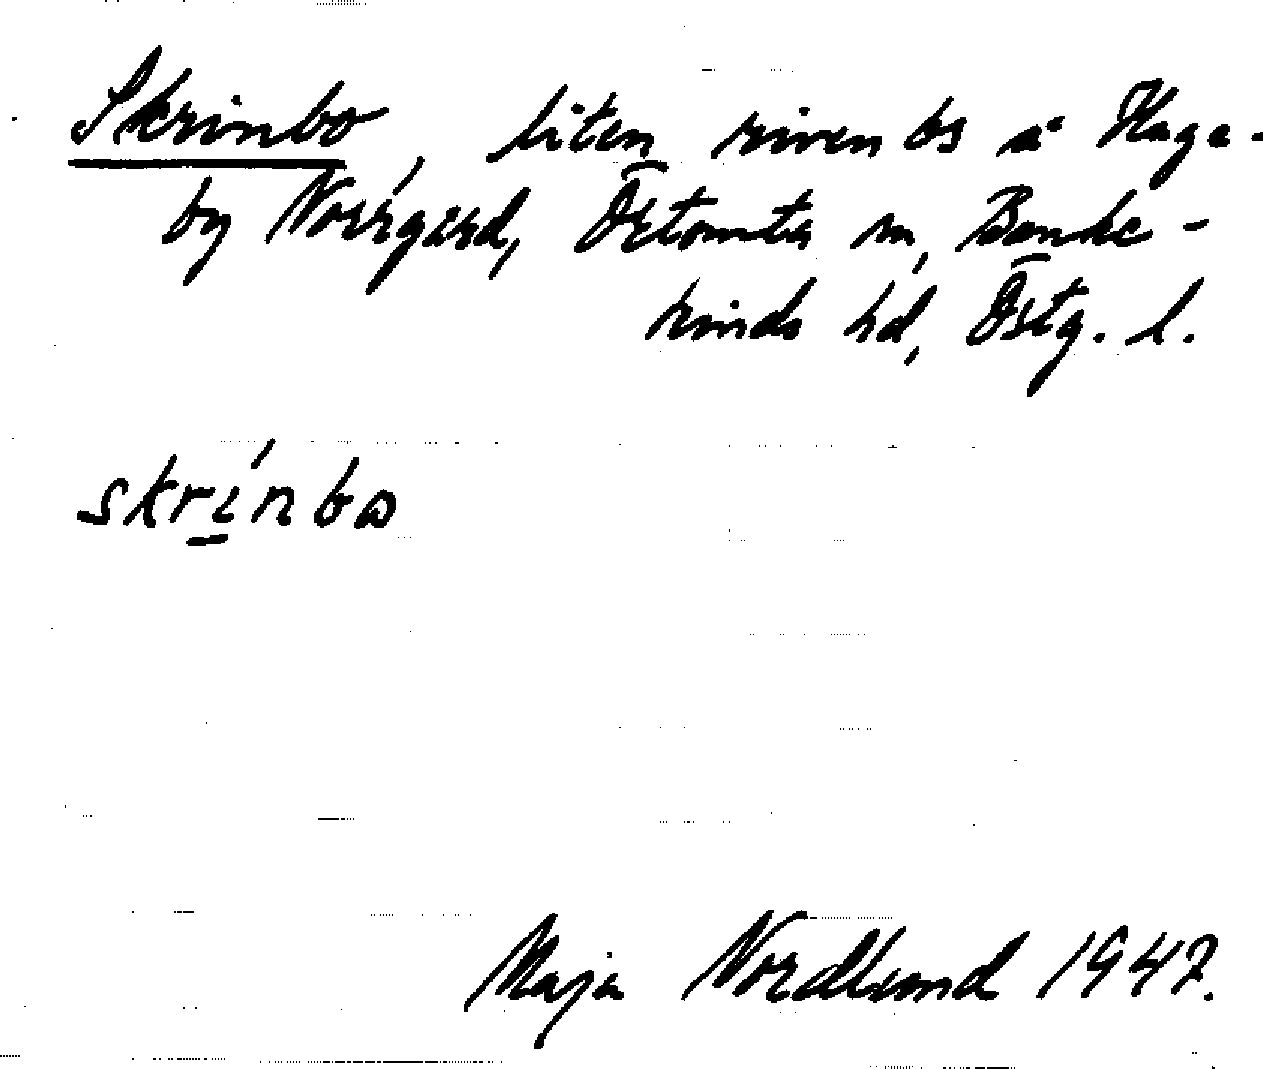 Skrinbo, liten riven bs å Haga-
by Norrgård, Östomta sn, Banke-
kinds hd, Östg. l.
skrinbω
Maja Nordlund 1947.